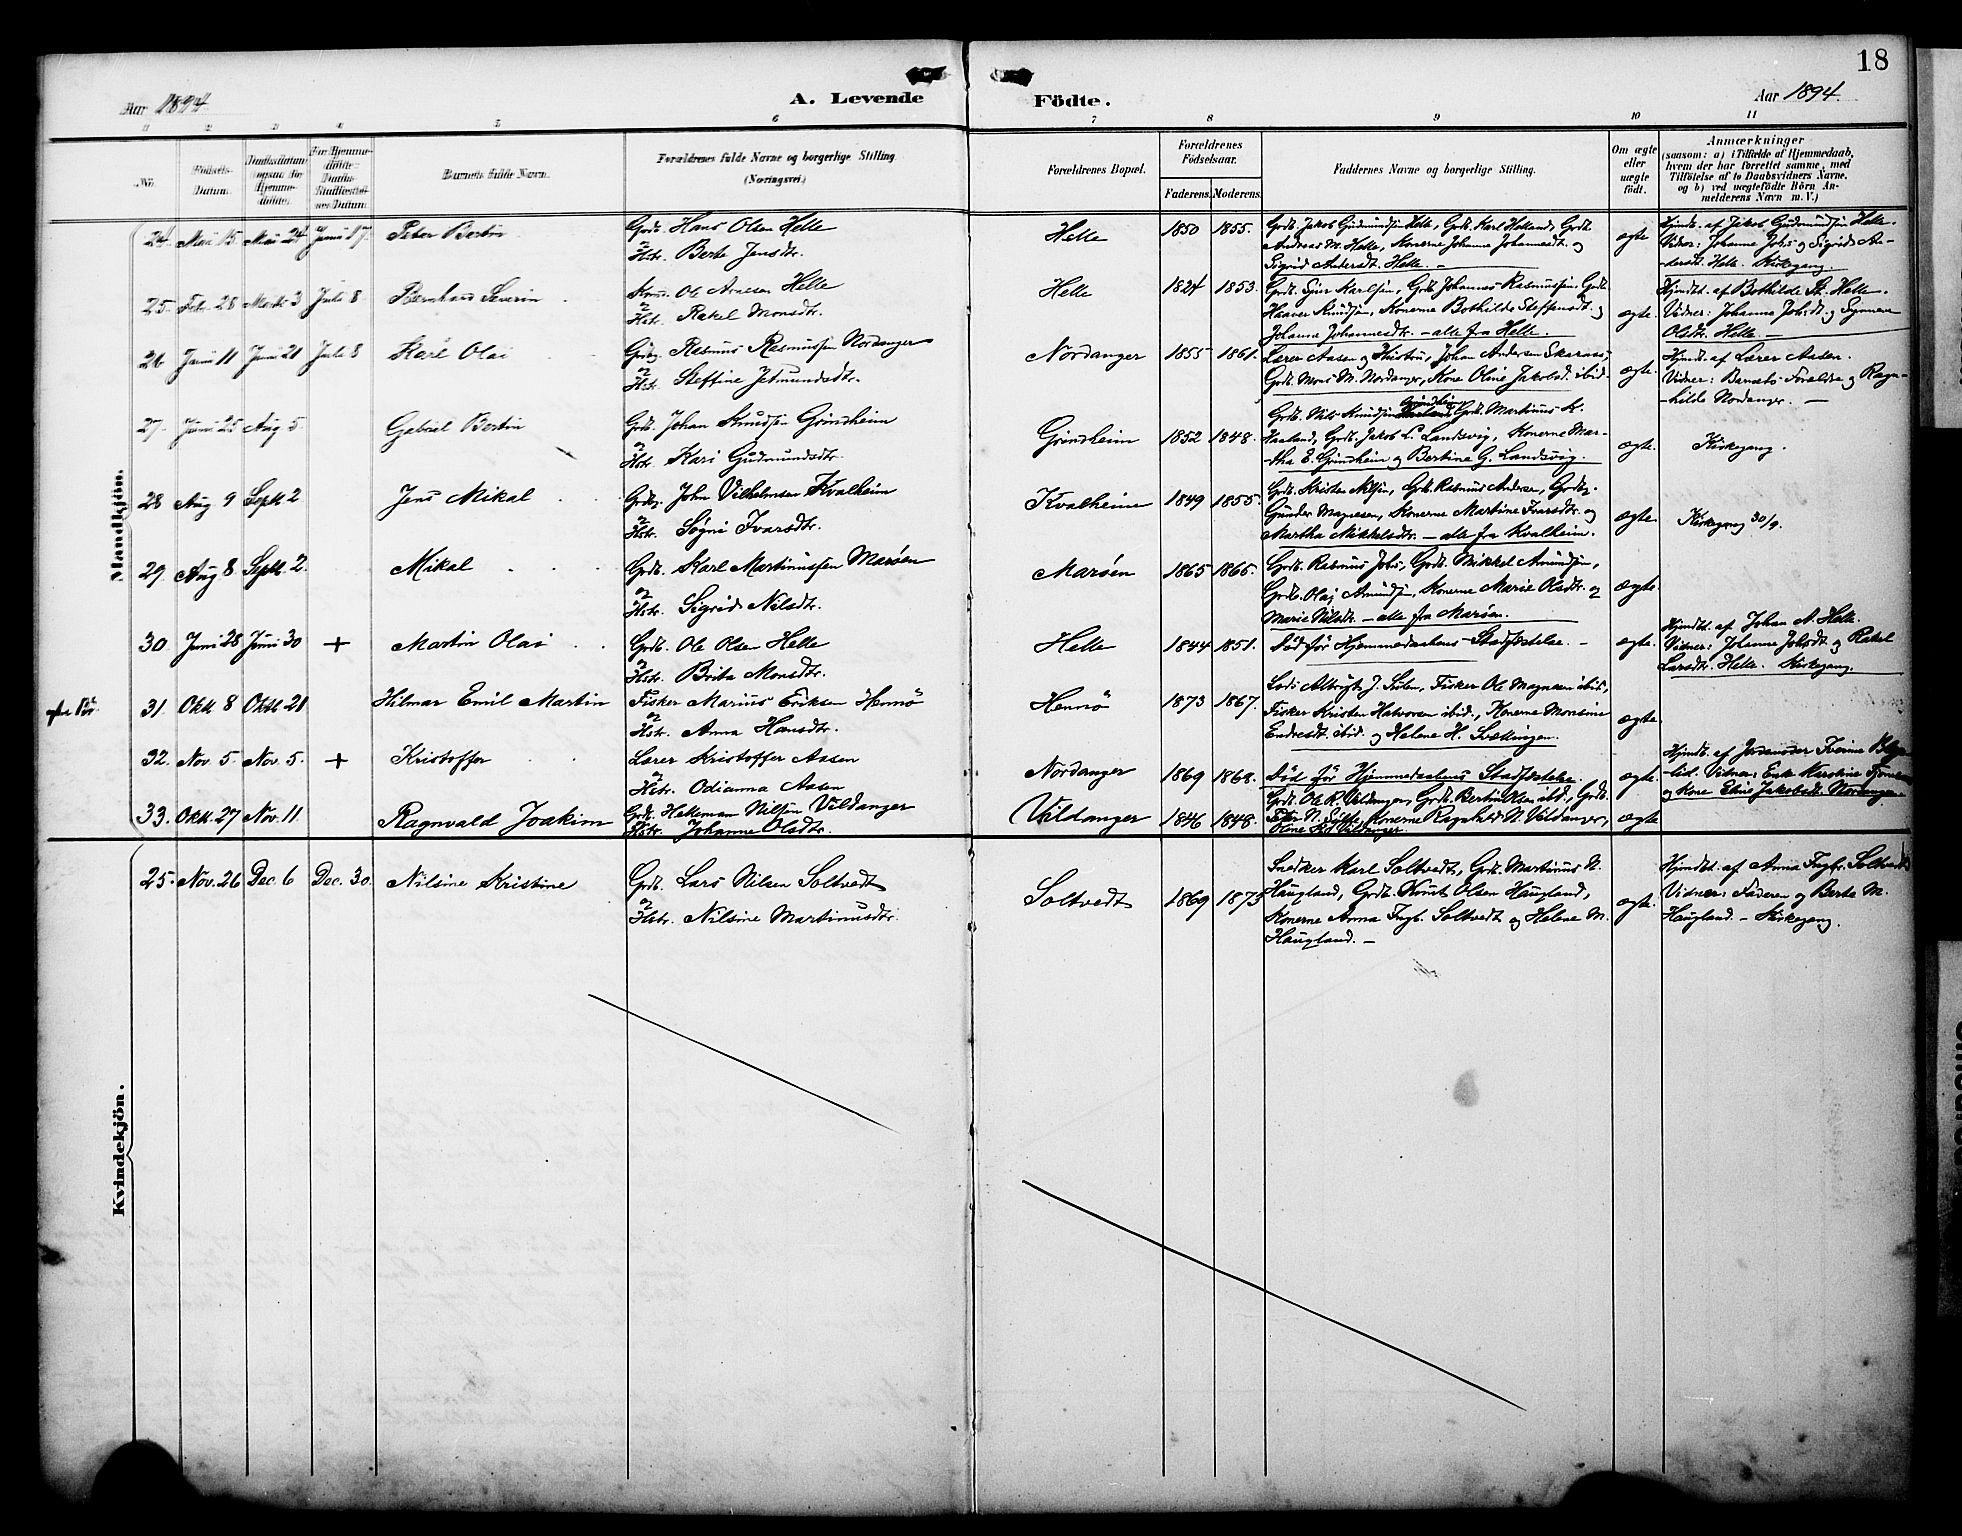 18
Aar 1894
A. Levende Födte.
Aar 1894.
1 2 3 4 5 6 7 8 9 10 11
No.
Födsels-Datum.
Daabsdatum (ogsaa for Hjemmedöbte).
For Hjemmedöbte: Daabs-Stadfæstelses-Datum.
Barnets fulde Navn.
Forældrenes fulde Navne og borgerlige Stilling (Næringsvei.)
Forældrenes Bopæl.
Forældrenes Födselsaar.
Faderens. Moderens.
Faddernes Navne og borgerlige Stilling.
Om ægte eller uægte födt.
Anmærkninger
(saasom: a) i Tilfælde af Hjemmedaab,
hvem der har forrettet samme, med
Tilföielse af to Daabsvidners Navne.
og b) ved uægtefödte Börn An-
melderens Navn m. V.)
Mandkjön.
24. Mai 15. Mai 24 Juni 17. Peter Bertin
Grdb. Hans Olsen Helle
og
Hstr. Berte Jensdtr.
Helle 1850 1855.
Grdb. Jakob Gudmundsen Helle, Grdb. Karl Helland, Grdb.
Andreas M. Helle, Konerne Johanna Johannesdt. og
Sigrid Andersdt. Helle. –
ægte
Hjmdb. af Jakob Gudmundsen Helle.
Vidner: Johanna Johs og Sigrid An-
dersdt. Helle. Kirkegang.
25. Febr. 28 Marts 3 Juli 8. Bernhard Severin
Ole Arnesen Helle
og
Hstr. Rakel Monsdtr.
Helle 1824 1853.
Grdb. Sjur Karlsen, Grdb. Johannes Rasmussen, Grdb.
Haaver Knudsen, Konerne Bothilde Steffensdt. og
Johanna Johannesdtr. – alle fra Helle.
ægte.
Hjmdbt. af Bothilde St. Helle.
Vidner: Johanna Johsdt. og Synneve
Olsdtr. Helle –
26 Juni 11 Juni 21 Juli 8 Karl Olai
Rasmus Rasmussen Nordanger
og
Hstr. Steffine Jetmundsdtr.
Nordanger 1855 1861.
Lærer Aasen og Hustru, Johan Andersen Skarnes,
Grdb. Mons M. Nordanger, Kone Oline Jakobsd. ibid.
ægte.
Hjmdt. af Lærer Aasen.
Vidner: Barnets Forældre og Ragn-
hilde Nordanger. –
27. Juni 25 Aug 5. Gabriel Bertin
Grdb. Johan Knudsen Grindheim
og
Hstr. Kari Gudmundsdtr.
Grindheim 1852 1848.
Grdb. Nils Knudsen Grindheim, Grdb. Martinus K.
Haaland, Grdb. Jakob L. Landsvig, Konerne Mar-
tha E. Grindheim og Bertine G. Landsvig.
ægte.
Kirkegang.
28 Aug. 9 Septb. 2 Jens Mikal
John Vilhelmsen Kvalheim
og
Hstr. Søgni Ivarsdtr.
Kvalheim 1849 1855.
Grdb. Kristen Nilsen, Grdb. Rasmus Andersen,
Gunder Magnesen, Konerne Martine Ivarsdtr. og
Martha Mikkelsdtr. – alle fra Kvalheim.
ægte.
Kirkegang 30/9.
29. Aug 8 Septb 2. Mikal
Grdb. Karl Martinussen Marøen
og
Hstr. Sigrid Nilsdtr.
Marøen 1865 1865.
Grdb. Rasmus Johs, Grdb. Mikkel Amundsen,
Grdb. Olaj Amundsen, Konerne Marie Olsdtr. og
Marie Nilsdr. – alle fra Marøen.
ægte.
30. Juni 28 Juni 30 + Martin Olai
Grdb. Ole Olsen Helle
og
Hstr. Brita Monsdtr.
Helle 1844 1851.
Død før Hjemmedaabens Stadfæstelse. –
ægte.
Hjmdbt. af Johan A. Helle.
Vidner: Johanna Johsdt. og Rakel
Larsdtr. Helle. Kirkegang.
31. Oktb 8 Oktb 21 Hilmar Emil Martin
Fisker Marius Eriksen Hennø
og
Hstr. Anna Hansdtr.
Hennø 1873 1867.
Lods Albrigt J. Fisker Ole Magnesen ibid.,
Fisker Kristen Halvorsen ibid., Konerne Monsine
Endresdt. ibid. og Helene H. Svællingen.
ægte.
32. Nov. 5. Nov. 5. + Kristoffer
Lærer Kristoffer Aasen
og
Hstr. Odianna Aasen
Nordanger 1869 1868.
Død før Hjemmedaabens Stadfæstelse.
ægte.
Hjmdt. af Jordmoder
Vidner: Enke Karoline
og Kone Elsie Jakobsdt. Nordanger.
33. Oktb. 27 Nov. 11. Ragnvald Joakim
Grdb. Helleman Nilsen Vildanger
og
Hstr. Johanne Olsdtr.
Vildanger 1846 1848.
Grdb. Ole R. Vildanger, Grdb. Bertin Olsen ibid., Grdb.
Peder N. Konerne Ragnhild N. Vildanger,
Oline Vildanger.
ægte
Kvindekjön.
25. Nov. 26 Dec. 6 Dec. 30. Nilsine Kristine
Grdb. Lars Nilsen Soltvedt
og
Hstr. Nilsine Martinusdtr.
Soltvedt 1869 1873
Snedker Karl Soltvedt, Grdb. Martinus N.
Haugland, Grdb. Knut Olsen Haugland,
Konerne Anna Ingb. Soltvedt og Helene M.
Haugland. –
ægte.
Hjmdbt. af Anna Ingbr. Soltvedt
Vidner: Faderen og Berta M.
Haugland. – Kirkegang.